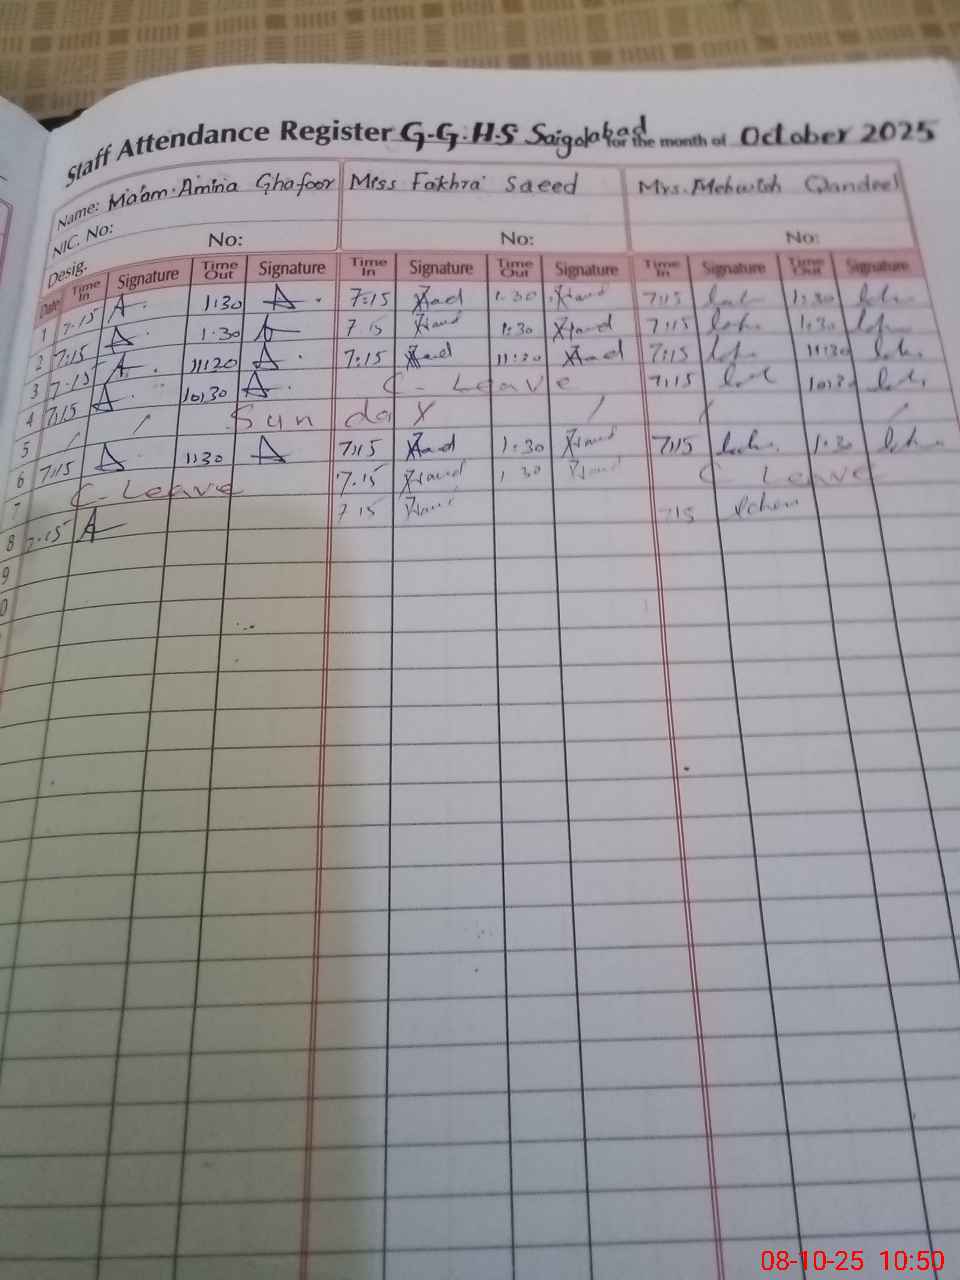 Staff Attendance Register G-G.H-S Saigolabad for the month of October 2025
Name: Ma'am Amina Ghafoor Miss Fakhra Saeed Mrs. Mehwish Qandeel
NIC. No:
No: No: No:
Desig.
Date Time In Signature Time Out Signature Time In Signature Time Out Signature Time In Signature Time Out Signature
1 7:15 A 1:30 A 7:15 1:30 7:15 1:30
2 7:15 A 1:30 A 7:15 1:30 7:15 1:30
3 7:15 A 11:20 A 7:15 11:20 7:15 11:30
4 7:15 A 10:30 A C-Leave 7:15
5 Sunday
6 7:15 A 1:30 A 7:15 1:30 7:15 1:30
7 C-Leave 7:15 1:30 C Leave
8 7:15 A 7:15 7:15
9
08-10-25 10:50